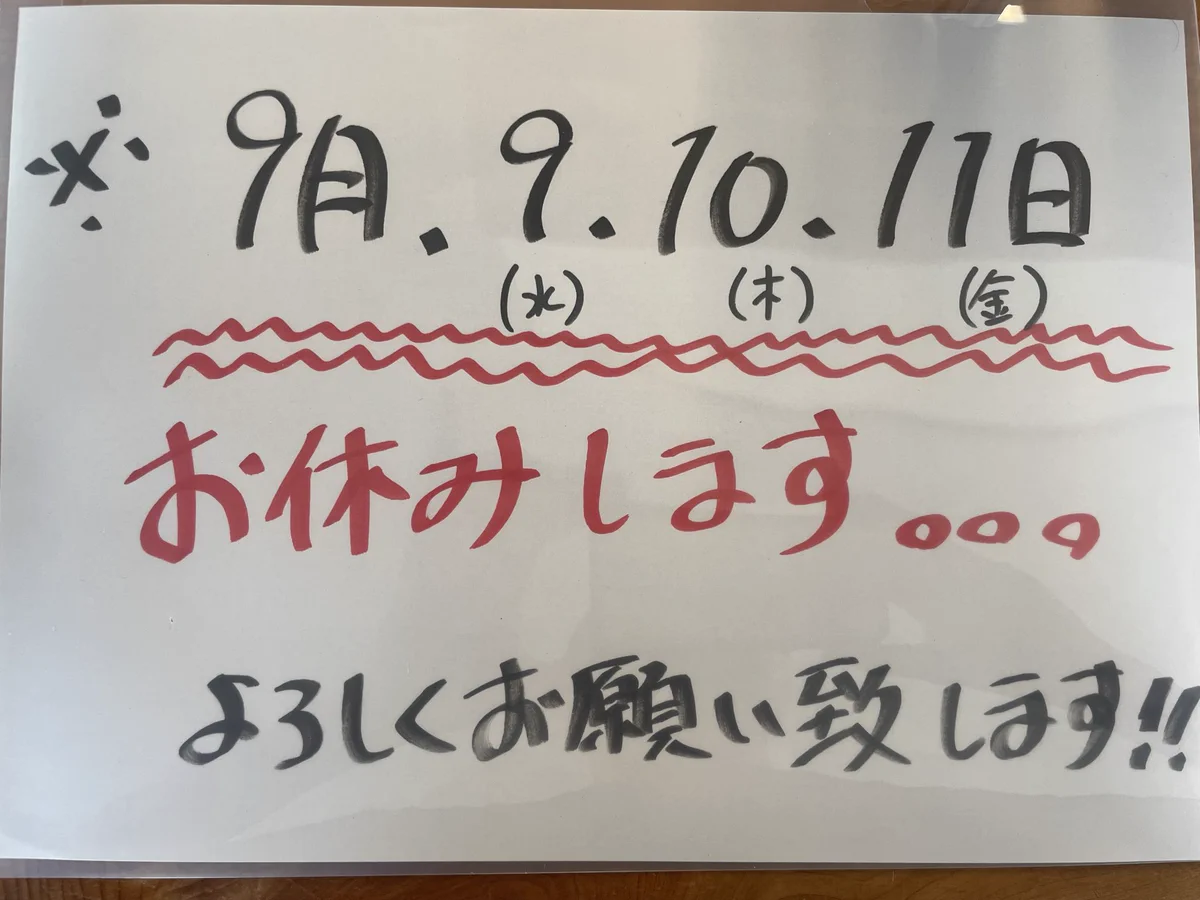 ※ 9月.9.10.11日
(水) (木) (金)
お休みします。。。
よろしくお願い致します!!